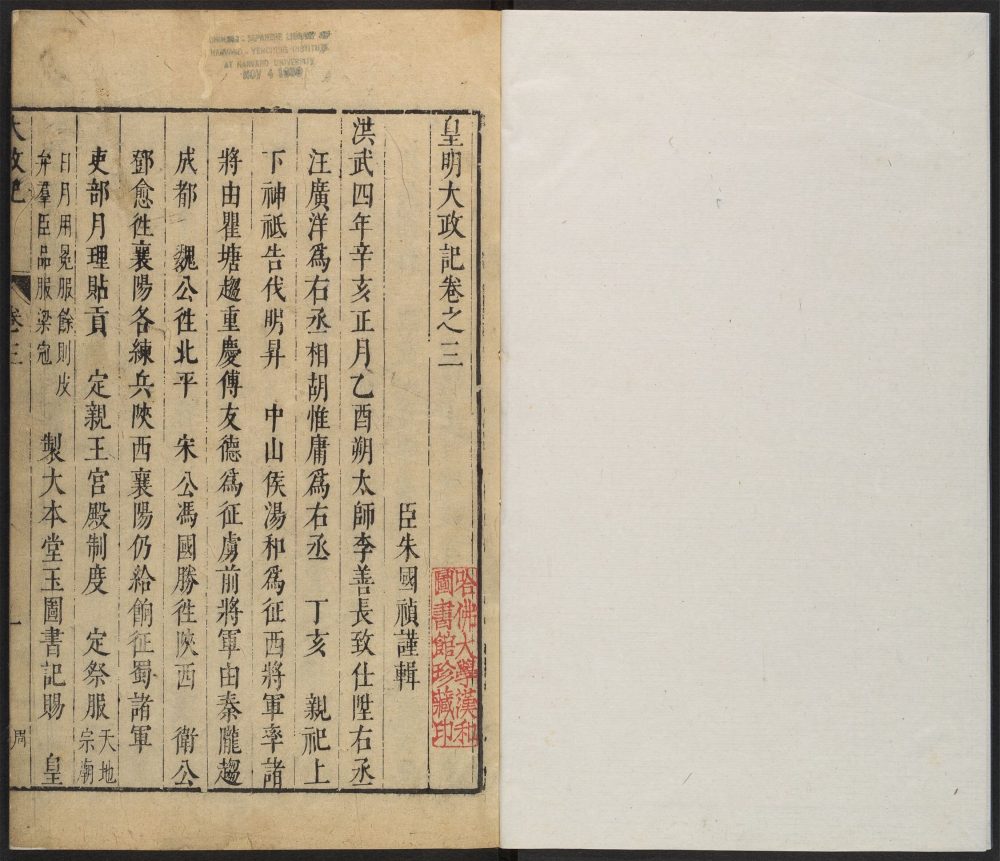 CHINESE - JAPANESE LIBRARY OF
HARVARD - YENCHING INSTITUTE
AT HARVARD UNIVERSITY
NOV 4
皇明大政記卷之三
臣朱國禎謹輯
哈佛大學漢和
圖書館珍藏印
洪武四年辛亥正月乙酉朔太師李善長致仕陞右丞
汪廣洋爲右丞相胡惟庸爲右丞　丁亥　親祀上
下神祇告伐明昇　中山侯湯和爲征西將軍率諸
將由瞿塘趨重慶傅友德爲征虜前將軍由秦隴趨
成都　魏公徃北平　宋公馮國勝徃陝西　衛公
鄧愈徃襄陽各練兵陝西襄陽仍給餉征蜀諸軍
吏部月理貼貢　定親王宮殿制度　定祭服天地
宗廟
日月用冕服餘則皮
弁羣臣品服梁冠　製大本堂玉圖書記賜　皇
大政記　卷三　一　周